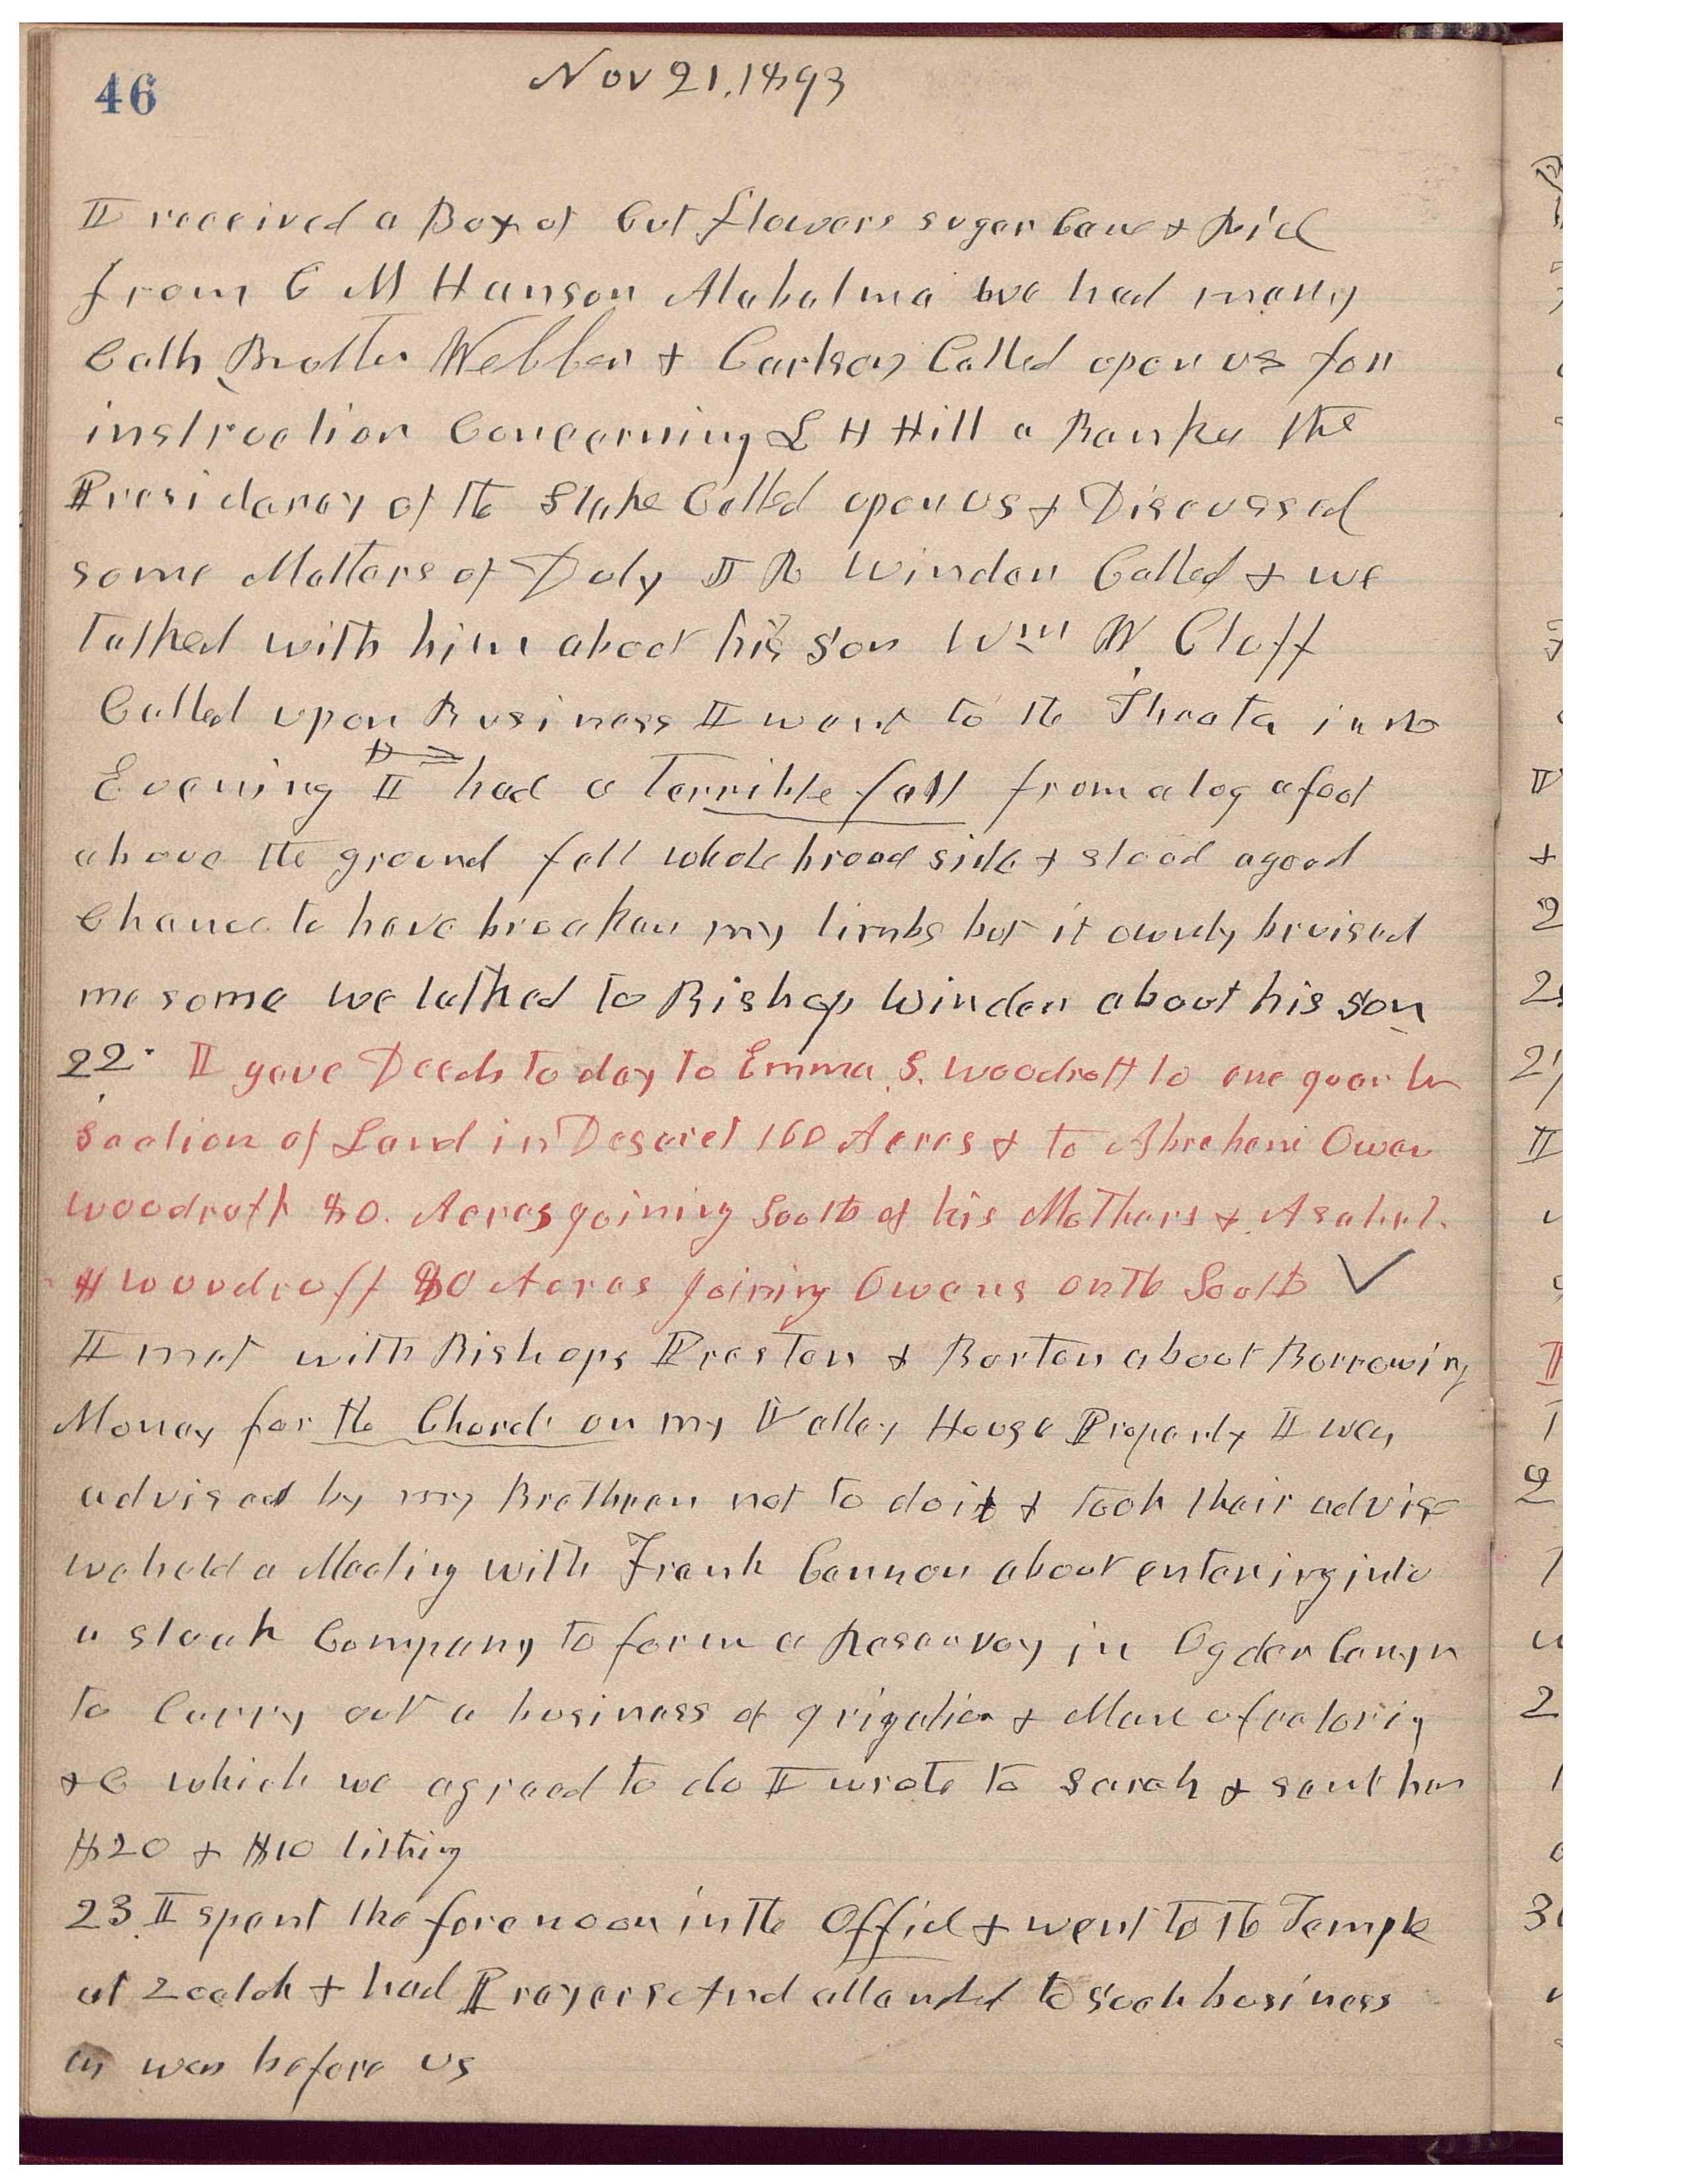 46
Nov 21, 1893
I received a Box of Cut flowers sugar Cane & Rice
from C M Hanson Alabalma we had many
Calls Brother Webber & Carlson Called upon us for
instruction Concerning L H Hill a Banker the
Presidency of the Stake Called upon us & Discussed
some Matters of Duty I R Winder Called & we
talked with him about his son Wm W Cluff
Called upon Business I went to the Theater in the
Evening I had a Terrible fall from a log a foot
above the ground fell whole broad side & stood a good
Chance to have broaken my limbs but it ownly bruised
me some we talked to Bishop Winder about his son
22. I gave Deeds to day to Emma S. Woodruff to one quarter
section of Land in Deseret 160 Acres & to Abraham Owen
Woodruff 80. Acres joining South of his Mothers & Asahel.
H Woodruff 80 Acres joining Owens on the South ✓
I met with Bishops Preston & Borton about Borrowing
Money for the Church on my Valley House Property I was
advised by my Brethren not to do it & took their advise
we held a Meeting with Frank Cannon about entering into
a stock Company to form a Reservoy in Ogden Canyn
to Carry out a business of irigation & Manufactoring
&C which we agreed to do I wrote to Sarah & sent her
$20 & $10 tithing
23 I spent the forenoon in the Office & went to the Temple
at 2 oclok & had Prayers And attended to such business
as was before us